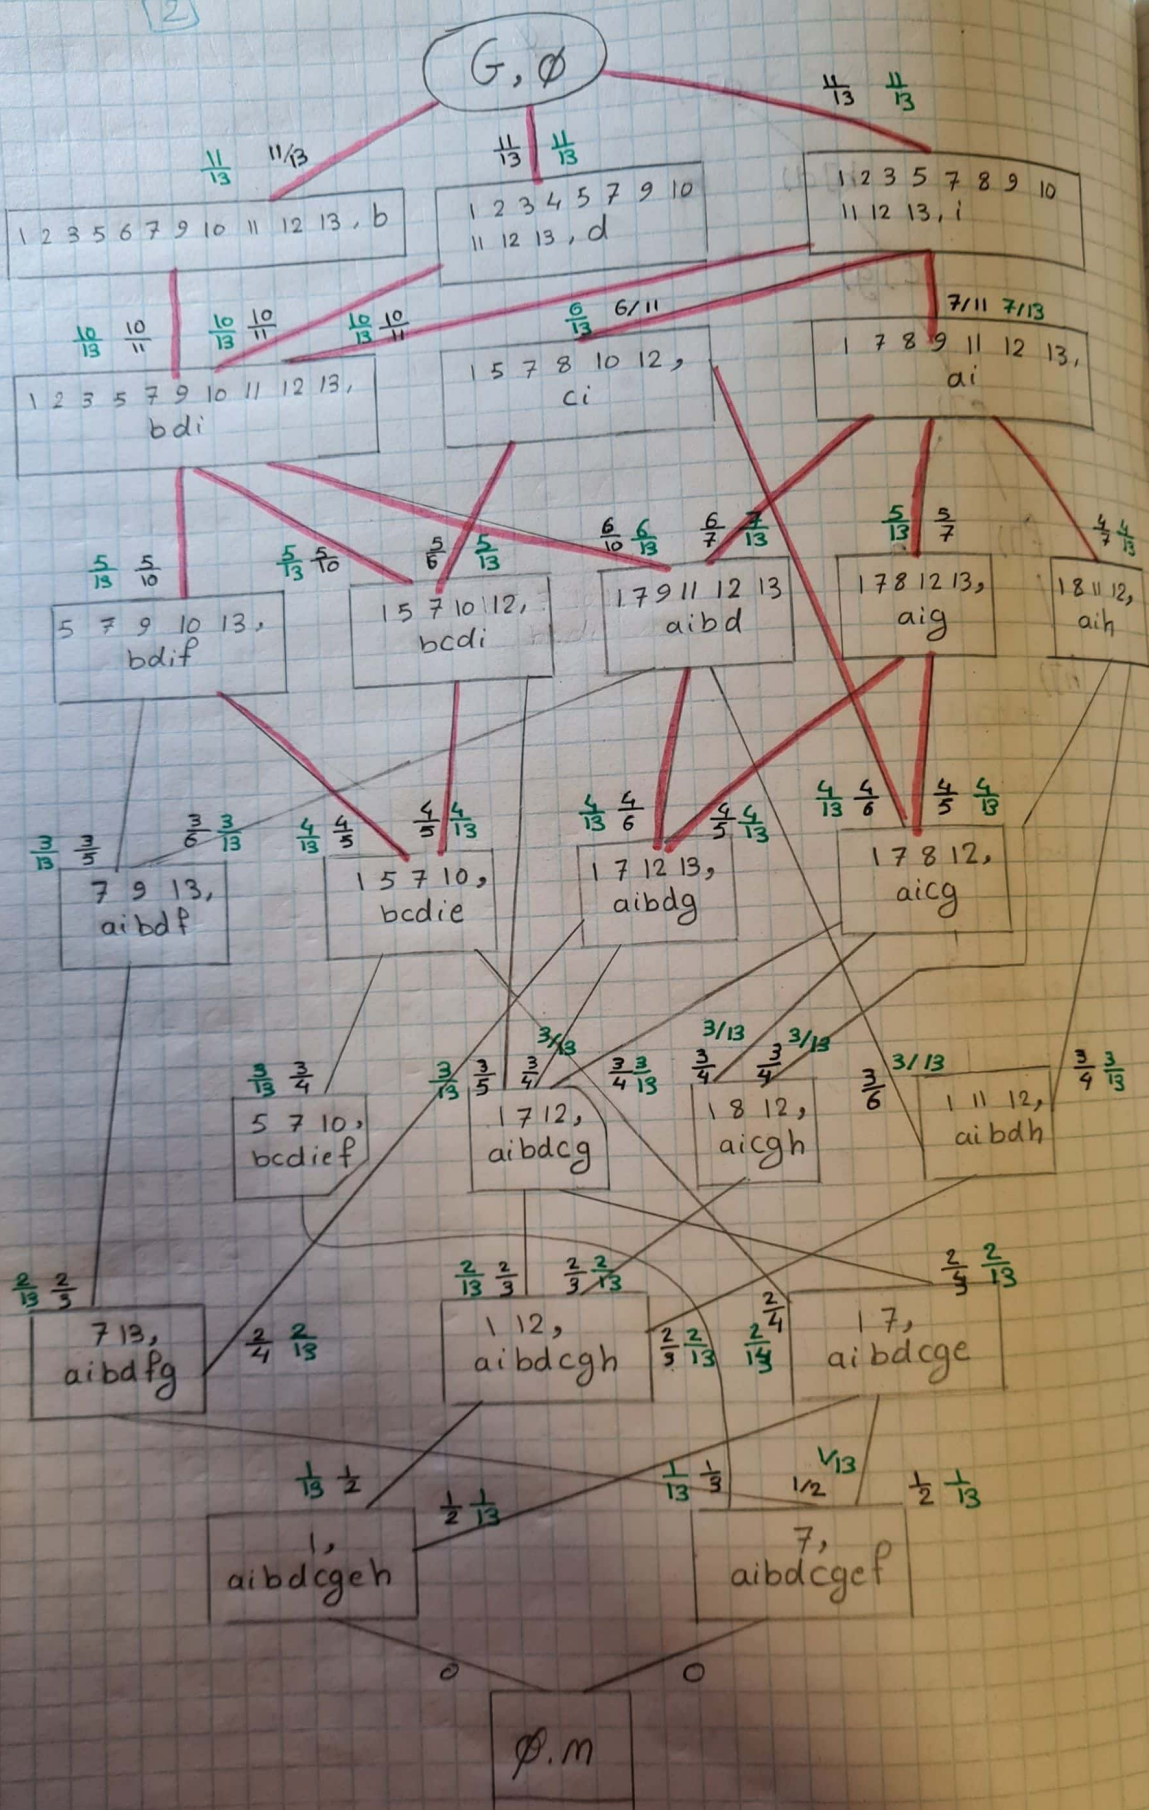 2
G, ∅
11/13 11/13
11/13 11/13
11/13 11/13
1 2 3 5 6 7 9 10 11 12 13, b
1 2 3 4 5 7 9 10
11 12 13, d
1 2 3 5 7 8 9 10
11 12 13, i
10/13 10/11
10/13 10/11
10/13 10/11
6/13 6/11
7/11 7/13
1 2 3 5 7 9 10 11 12 13,
bdi
1 5 7 8 10 12,
ci
1 7 8 9 11 12 13,
ai
5/13 5/10
5/13 5/10
5/6 5/13
6/10 6/13
6/7 7/13
5/13 5/7
4/7 4/13
5 7 9 10 13,
bdif
1 5 7 10 12,
bcdi
1 7 9 11 12 13
aibd
1 7 8 12 13,
aig
1 8 11 12,
aih
3/13 3/5
3/6 3/13
4/13 4/5
4/5 4/13
4/13 4/6
4/5 4/13
4/13 4/6
4/5 4/13
7 9 13,
aibdf
1 5 7 10,
bcdie
1 7 12 13,
aibdg
1 7 8 12,
aicg
3/13 3/4
3/13 3/5
3/4 3/13
3/4 3/13
3/4 3/13
3/4 3/13
3/6 3/13
3/4 3/13
5 7 10,
bcdief
1 7 12,
aibdcg
1 8 12,
aicgh
1 11 12,
aibdh
2/13 2/3
2/4 2/13
2/13 2/3
2/3 2/13
2/3 2/13
2/4 2/13
2/3 2/13
7 13,
aibdfg
1 12,
aibdcgh
1 7,
aibdcge
1/13 1/2
1/2 1/13
1/13 1/3
1/2 1/13
1/2 1/13
1,
aibdcgeh
7,
aibdcgef
0 0
∅.m